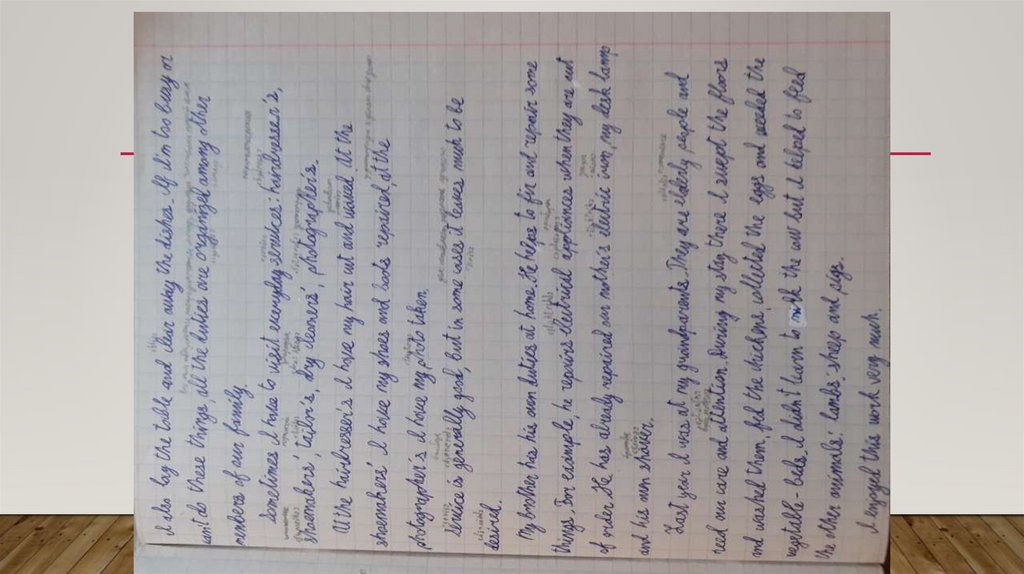 I also lay the table and clear away the dishes. If I'm too busy or
can't do these things, all the duties are organized among other
members of our family.
Sometimes I have to visit everyday services: hairdresser's,
shoemakers', tailor's, dry cleaners', photographer's.
At the hairdresser's I have my hair cut and waved. At the
shoemakers' I have my shoes and boots repaired, at the
photographer's I have my photo taken.
Service is generally good, but in some cases it leaves much to be
desired.
My brother has his own duties at home. He helps to fix and repair some
things. For example, he repairs electrical appliances when they are out
of order. He has already repaired our mother's electric iron, my desk lamp
and his own shaver.
Last year I was at my grandparents. They are elderly people and
need our care and attention. During my stay there I swept the floors
and washed them, fed the chickens, collected the eggs and weeded the
vegetable-beds. I didn't learn to milk the cow but I helped to feed
the other animals: lambs, sheep and pigs.
I enjoyed this work very much.